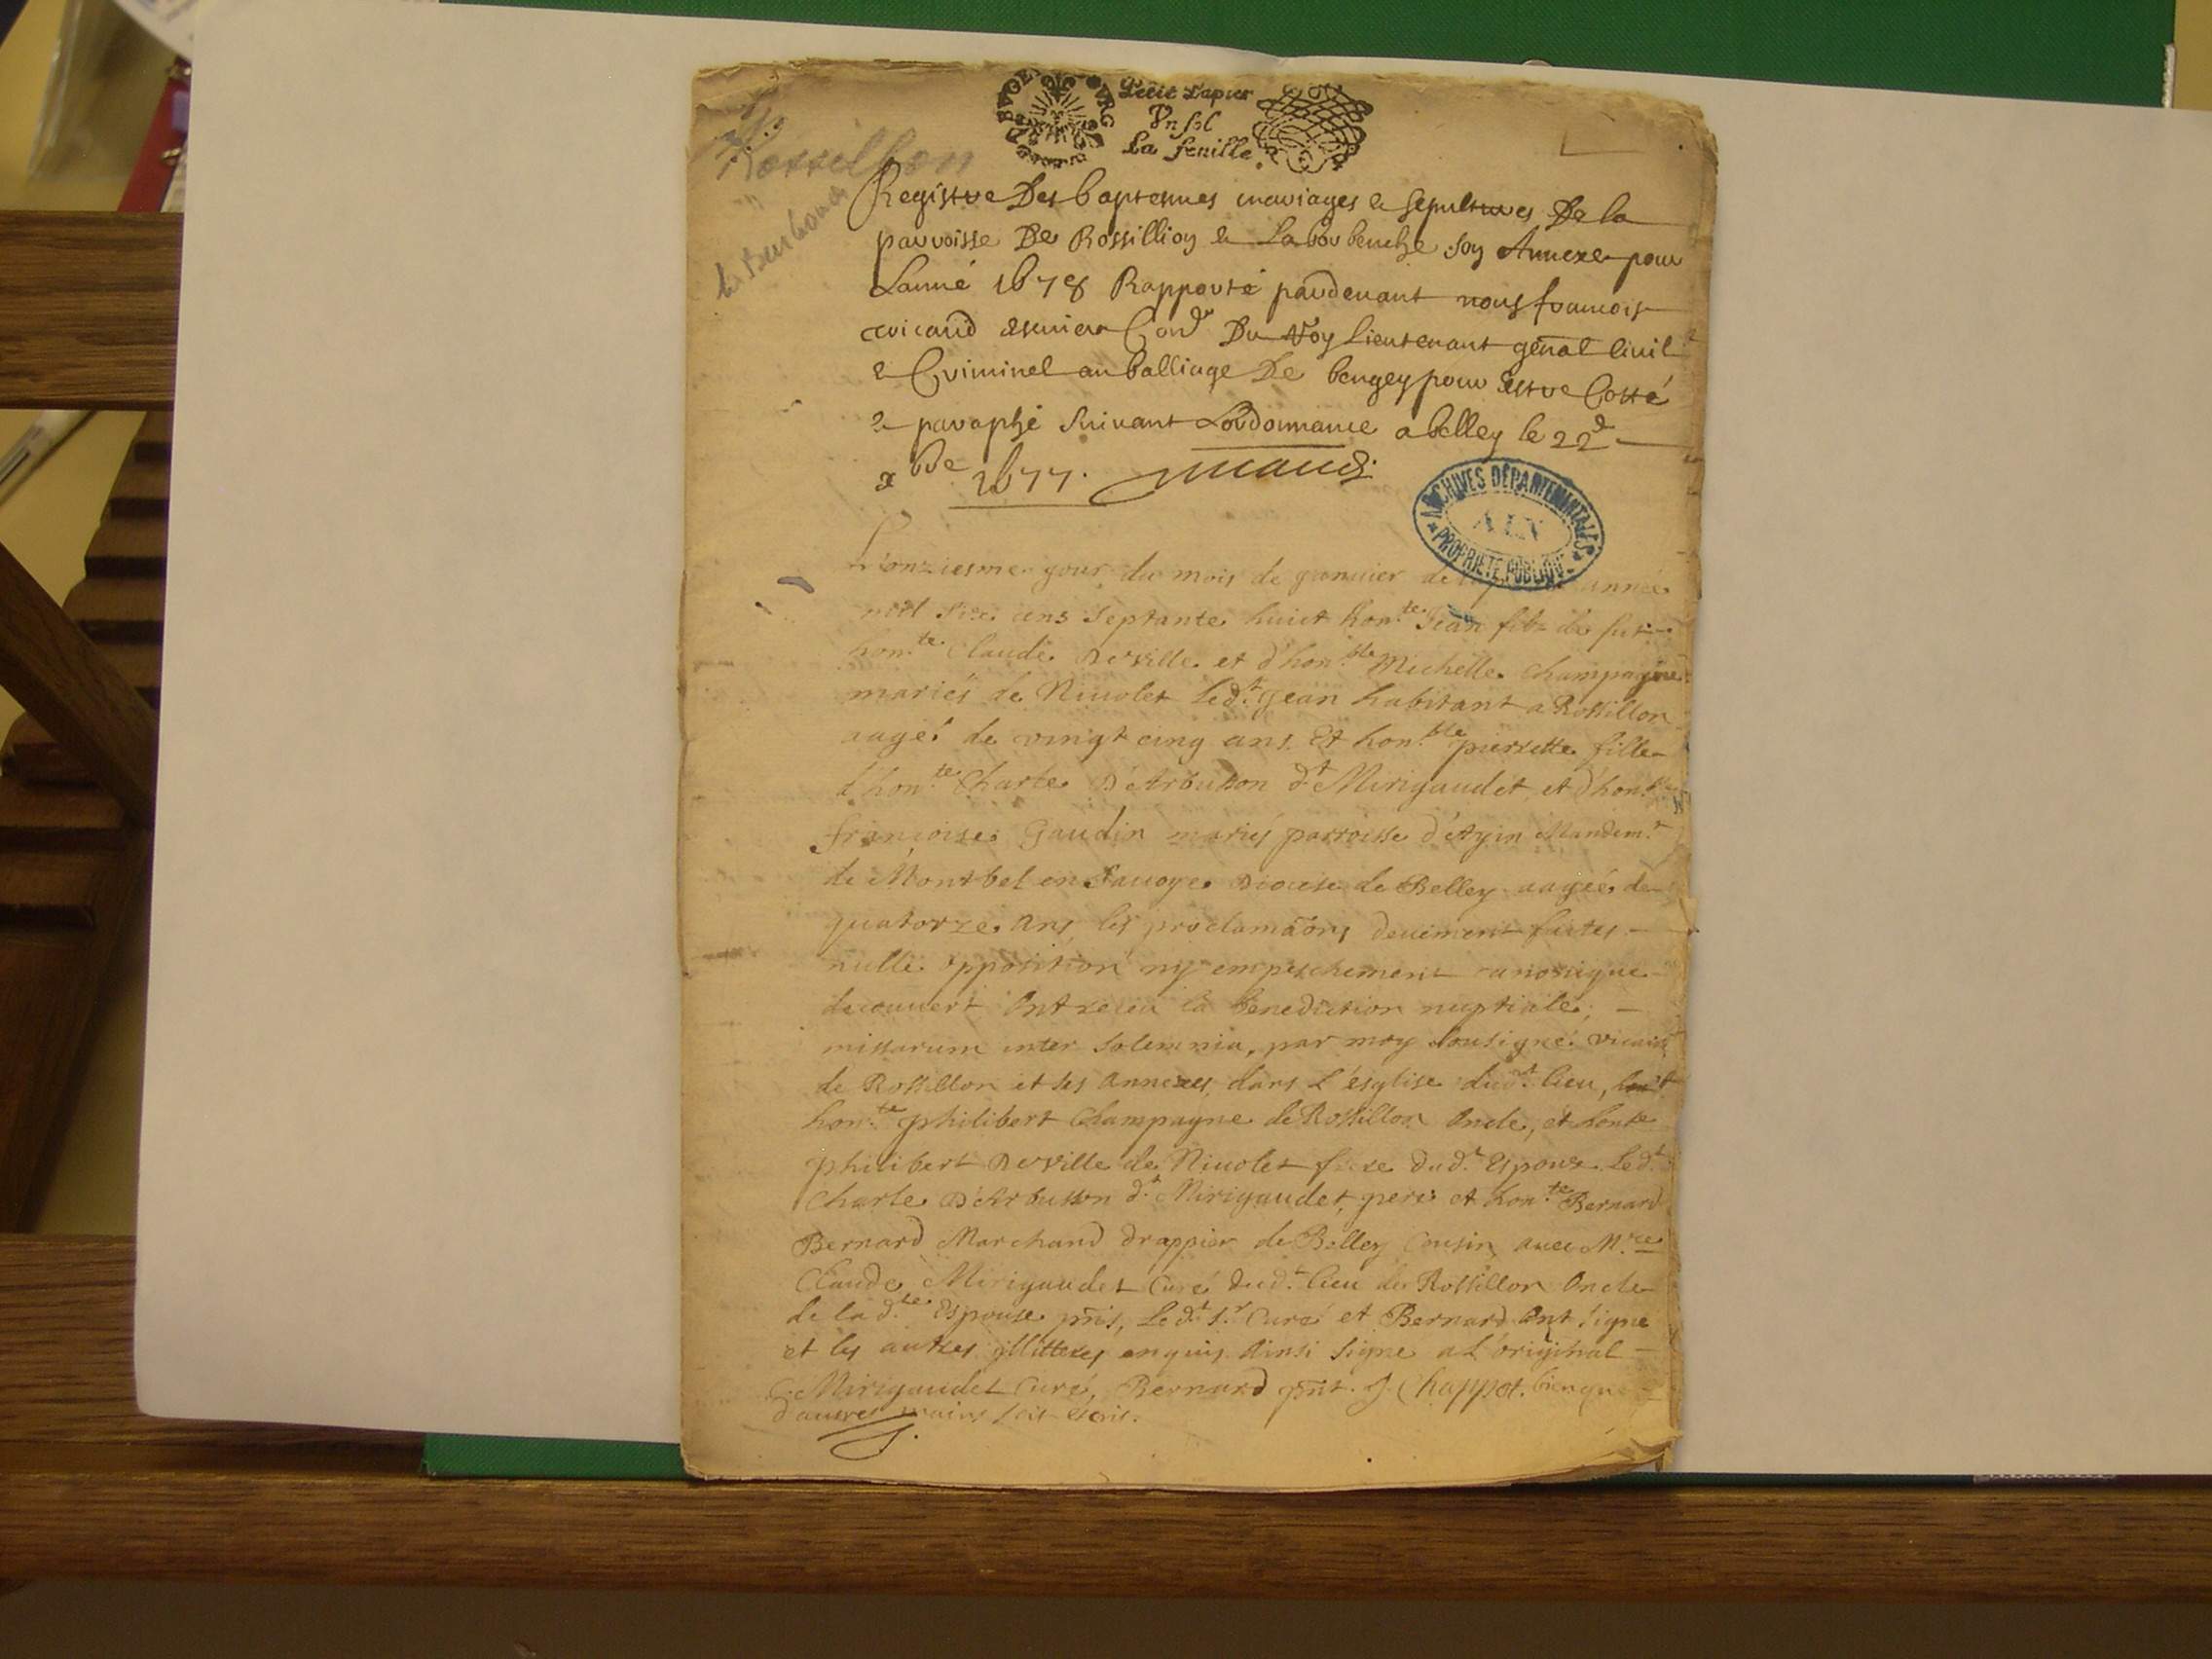 Petit Papier
Un sol
La feuille.
Rossillon
Registre Des baptesmes mariages e sepultures De la
parroisse De Rossillion e Labourbenche son Annexe pour
Lanné 1678 Rapporté pardevant nous francois
escuier Con.r Du Roy Lieutenant genal Civil
e Criminel au balliage De beugey pour Estre Cotté
e paraphé suivant Lordonnance a belley le 22e
xbre 1677.
L'onziesme jour du mois de janvier de année
mil six cens septante huict hon.te Jean filz de fut
hon.te Claude Deville et d'hon.ble Michelle Champagne
mariés de Nivolet led.t Jean habitant a Rossillon
aagé de vingt cinq ans. Et hon.ble pierrette fille
d'hon.te Charle D'Arbusson d.t Mirigaudet et d'hon.ble
françoise Gaudin mariés parroisse d'Ayin Mandem.t
de Montbel en Savoye Diocese de Belley aagée de
quatorze ans, les proclamaõns deüement faites
nulle opposition ny empeschement canonique
decouvert Ont receu la benediction nuptiale,
missarum inter solemnia, par moy sousigné vicaire
de Rossillon et ses annexes, dans l'esglise dud.t lieu,
hon.te philibert Champagne de Rossillon Oncle, et honte
philibert Deville de Nivolet frere dud.t Espoux. Led.t
Charle D'Arbusson d.t Mirigaudet, pere et hon.te Bernard
Bernard Marchand drappier de Belley Cousin, avec M.re
Claude Mirigaudet Curé dud.t lieu de Rossillon Oncle
de la d.te Espouse pñs, Led.t S.r Curé et Bernard Ont signé
et les autres illitterés enquis. Ainsi signé a l'original
C. Mirigaudet Curé, Bernard pñt. J. Chappot. bien que
d'autres mains soit escris.
ARCHIVES DÉPARTEMENTALES
AIN
PROPRIÉTÉ PUBLIQUE